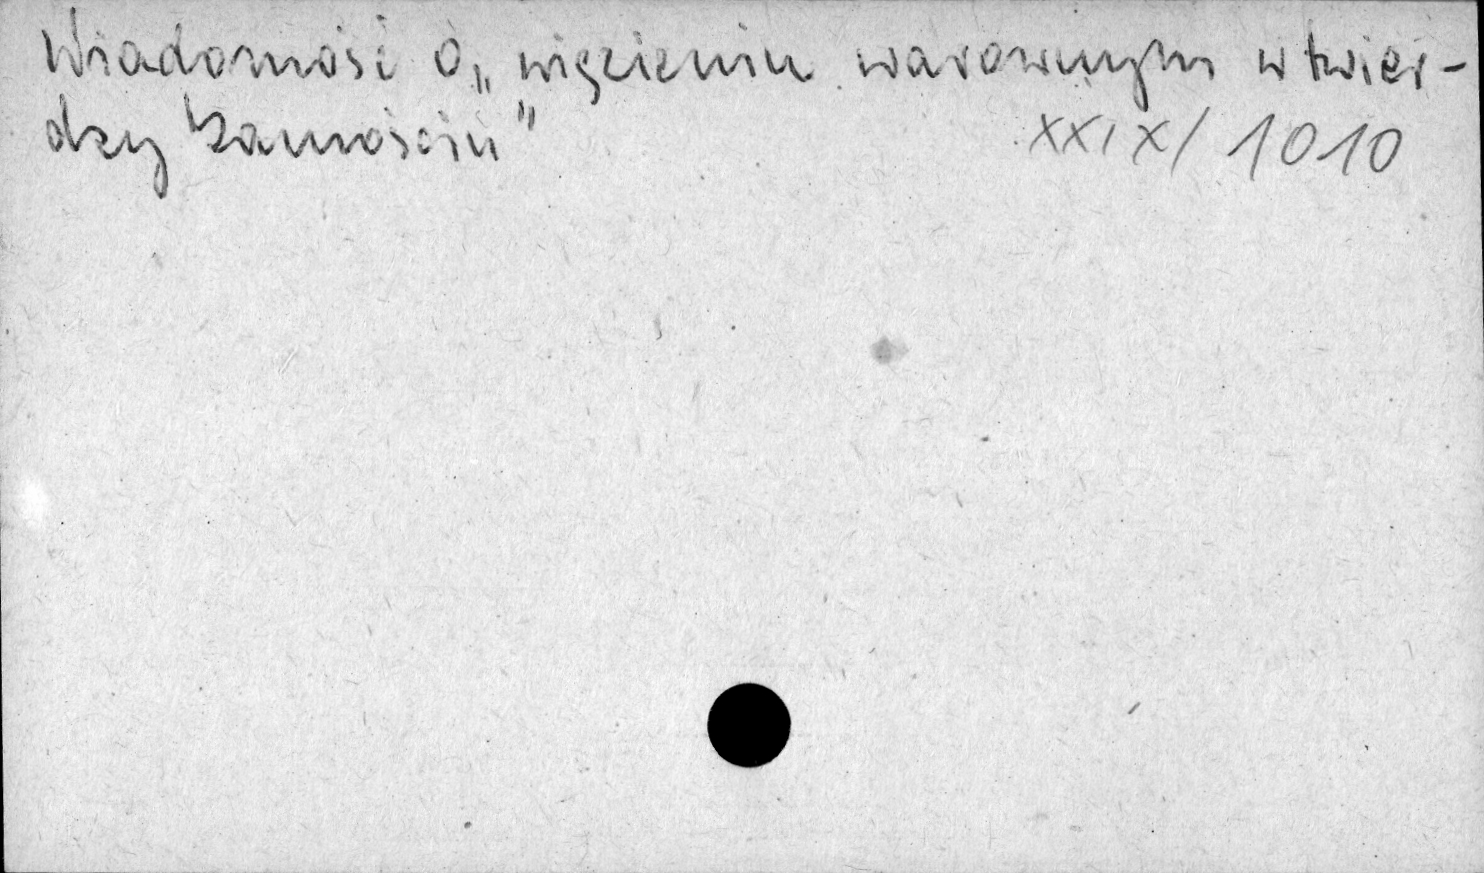 Wiadomość o „więzieniu warownym w twier-
dzy Zamościu" XXIX/1010